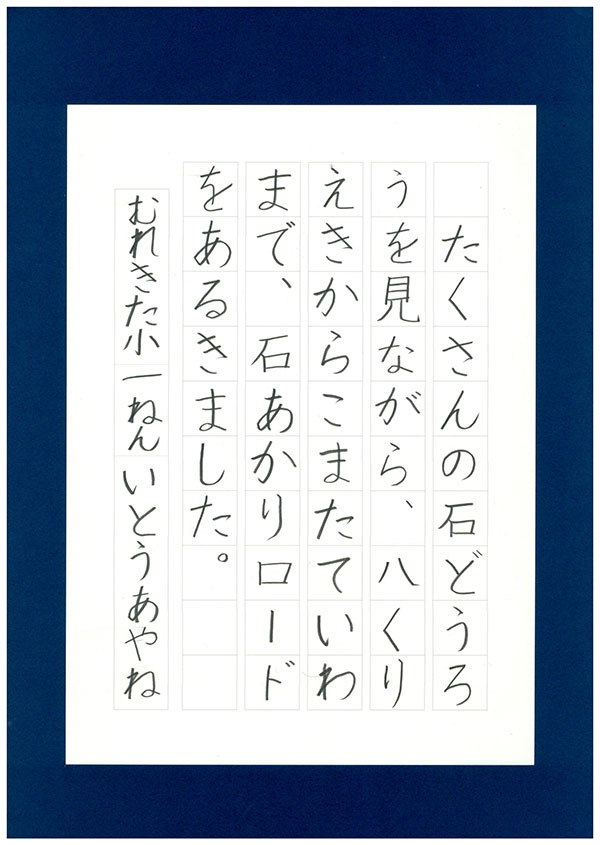 たくさんの石どうろ
うを見ながら、八くり
えきからこまたていわ
まで、石あかりロード
をあるきました。
むれきた小一ねんいとうあやね